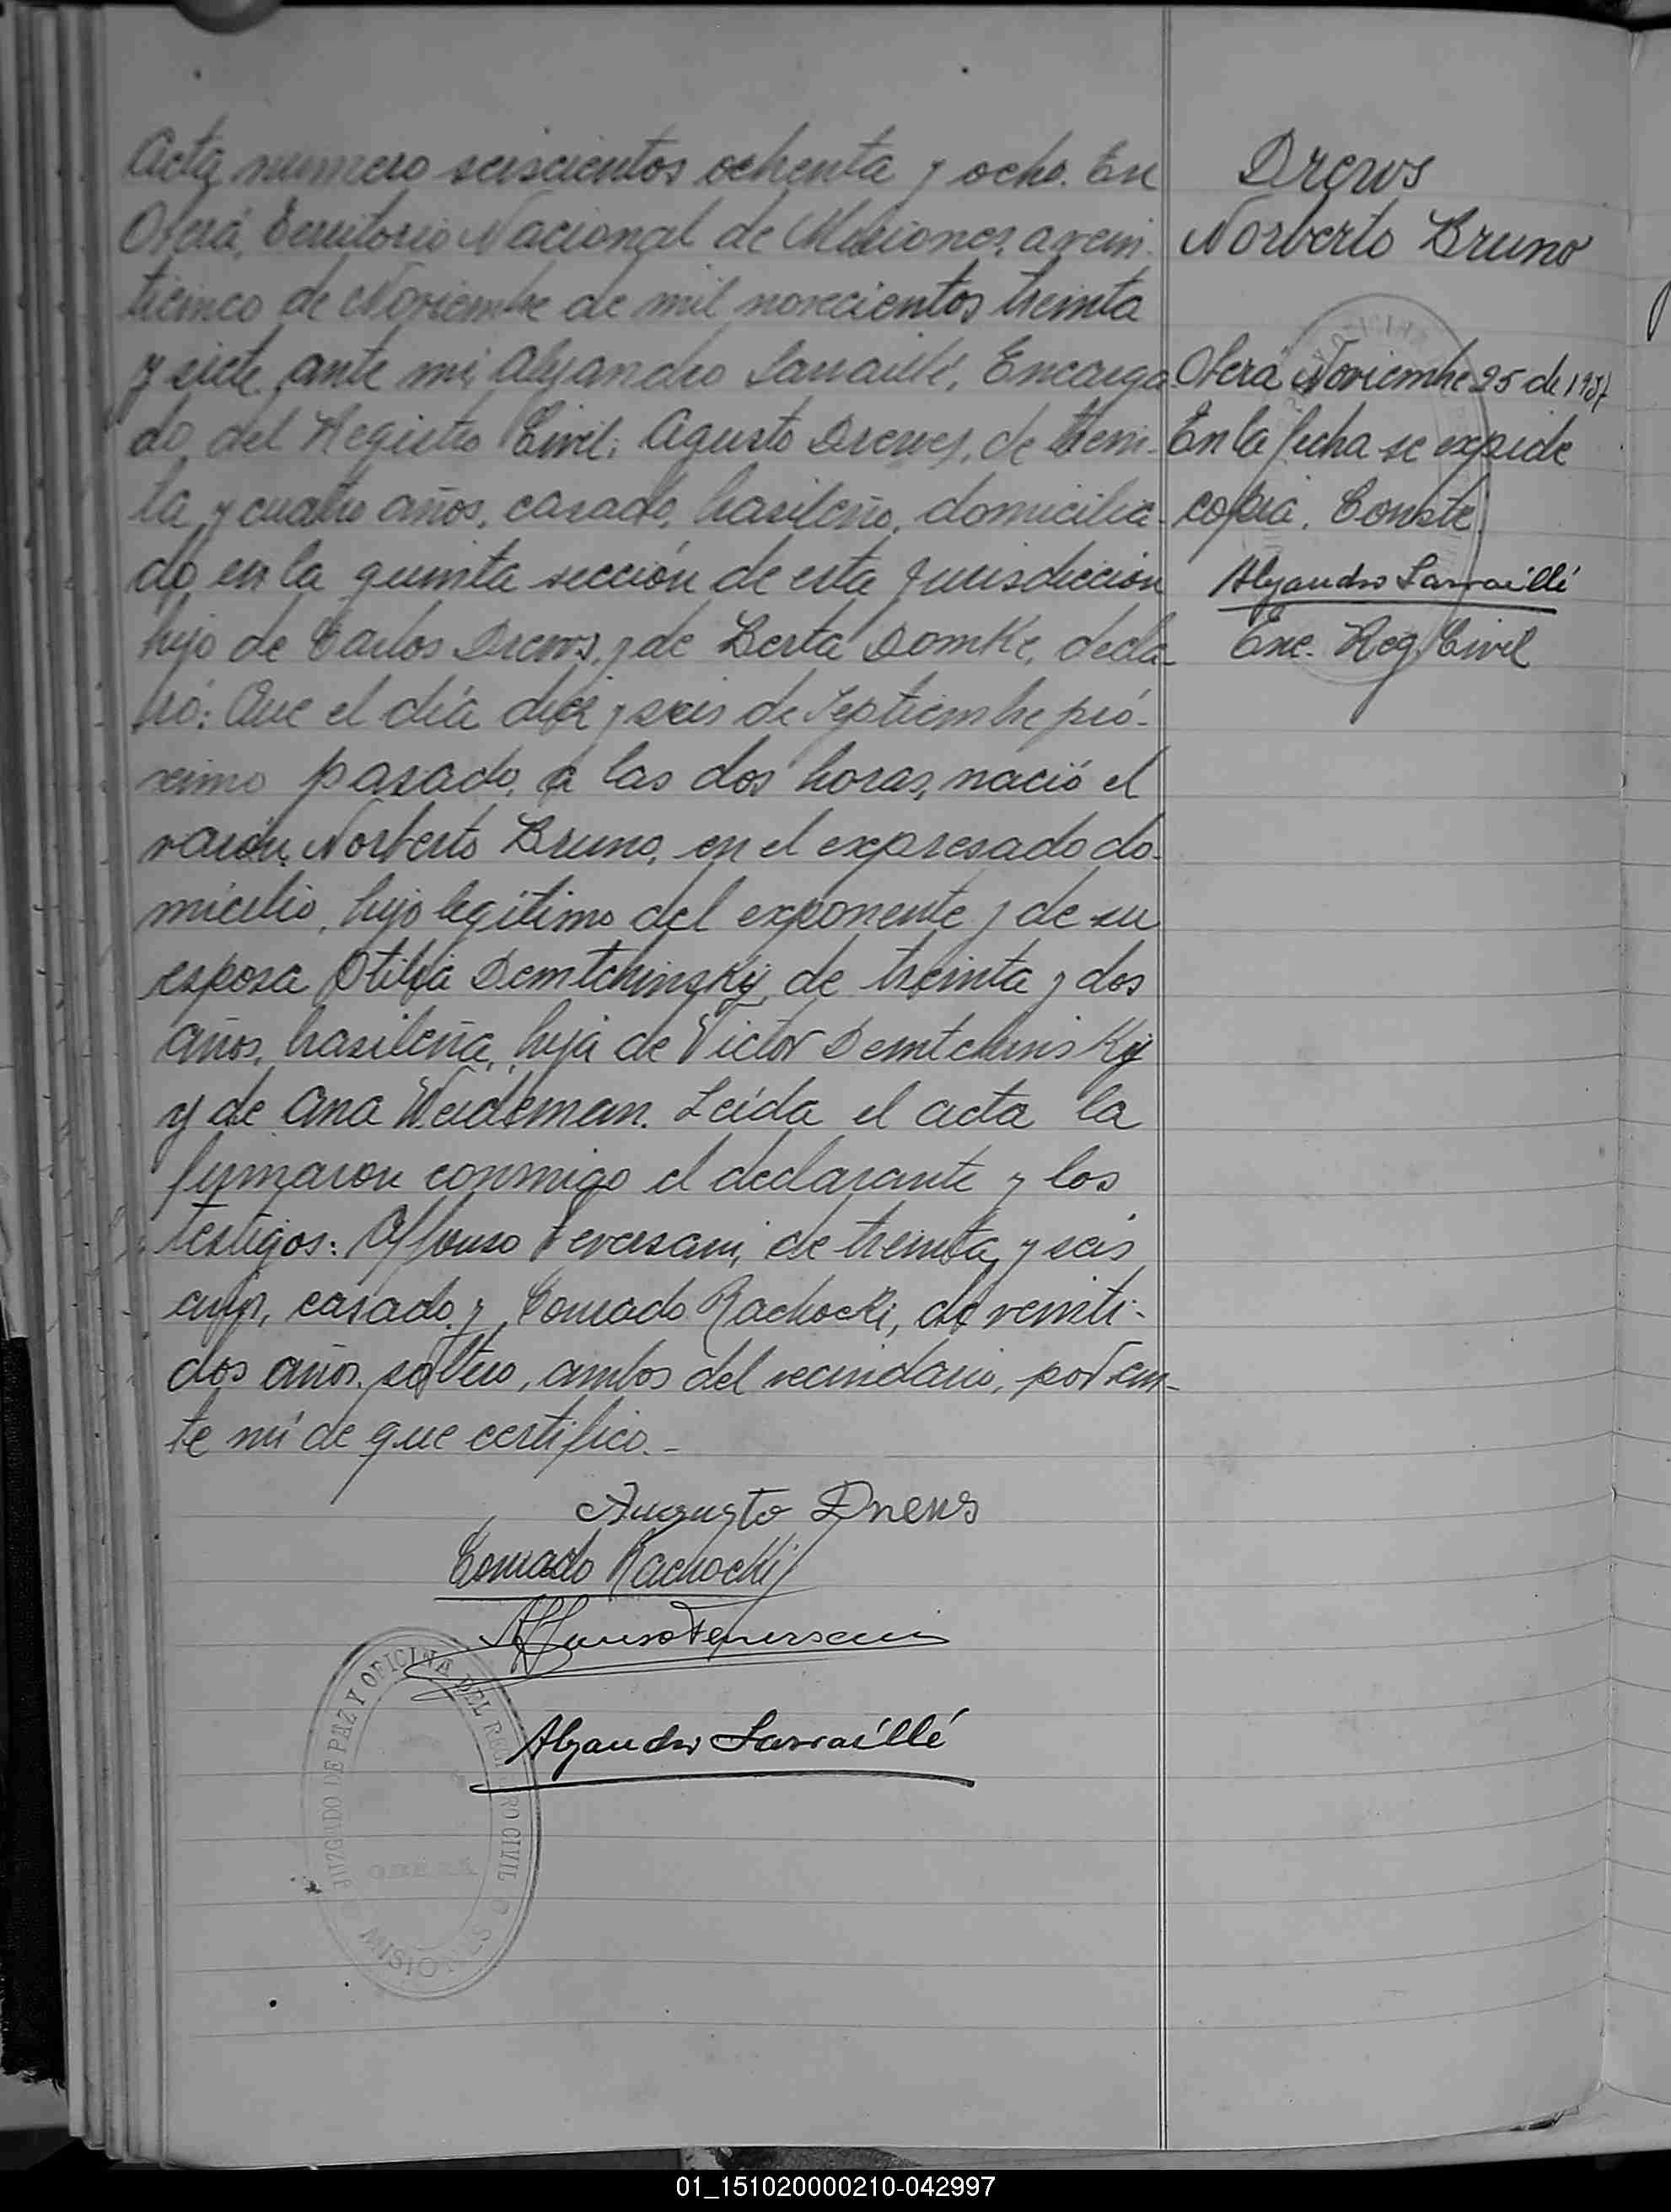 Acta numero seiscientos ochenta y ocho. En
Oberá, Territorio Nacional de Misiones, a vein-
ticinco de Noviembre de mil novecientos treinta
y siete, ante mi, Alejandro Sarraillé, Encarga
do del Registro Civil; Agusto Drews, de trein-
ta y cuatro años, casado, brasileño, domicilia-
do en la quinta sección de esta Jurisdicción
hijo de Carlos Drews, y de Berta Domke, decla-
ró: Que el día diez y seis de Septiembre pró-
ximo pasado, a las dos horas, nació el
varón, Norberto Bruno, en el expresado do-
micilio, hijo legítimo del exponente y de su
esposa Otilia Demtchinsky, de treinta y dos
años, brasileña, hija de Victor Demtchinsky
y de Ana Weideman. Leída el acta la
firmaron conmigo el declarante y los
testigos: Affonso Feversani, de treinta y seis
años, casado y Conrado Rachocki, de veinti-
dos años, soltero, ambos del vecindario, por an-
te mí de que certifico.-
Augusto Drews
Conrado Rachocki
Affonso Feversani
Alejandro Sarraillé
JUZGADO DE PAZ Y OFICINA DEL REGI RO CIVIL
OBERA
MISIONES
Drews
Norberto Bruno
Oberá Noviembre 25 de 1937
En la fecha se expide
copia. Conste.
Alejandro Sarraillé
Enc. Reg. Civil
01_151020000210-042997